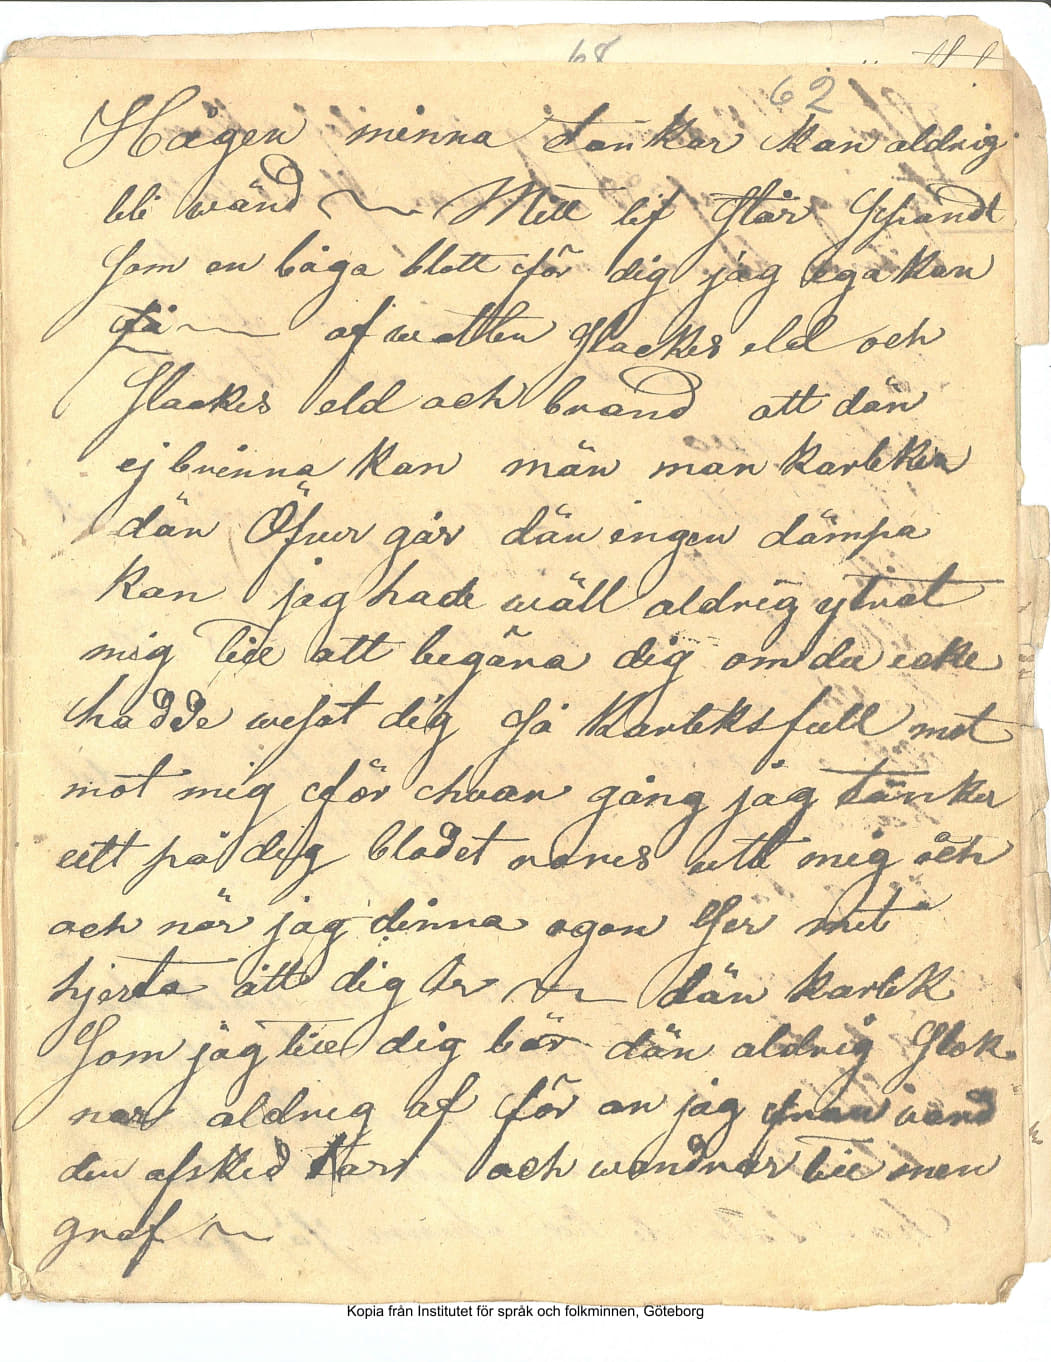 62
Hågen minna tankar kan aldrig
bli wänd ~ Mitt lif står spandt
som en båga blott för dig jag ega kan
få ~ af watten slackes eld och
slackes eld och brand att dän
ej brinna kan män man karleken
dän Öfver går dän ingen dämpa
kan jag hade wäll aldrig ytrat
mig till att begära dig om du icke
hadde wesat dig så karleksfull mot
mot mig för hvar gång jag tänker
ett på dig blodet rores uti mig och
och när jag dinna ogon ser mit
hjerta ått dig ler ~ dän karlek
som jag till dig bär dän aldrig slok
nar aldrig af för an jag från värd
den afsked tar och wandrar till men
graf ~
Kopia från Institutet för språk och folkminnen, Göteborg